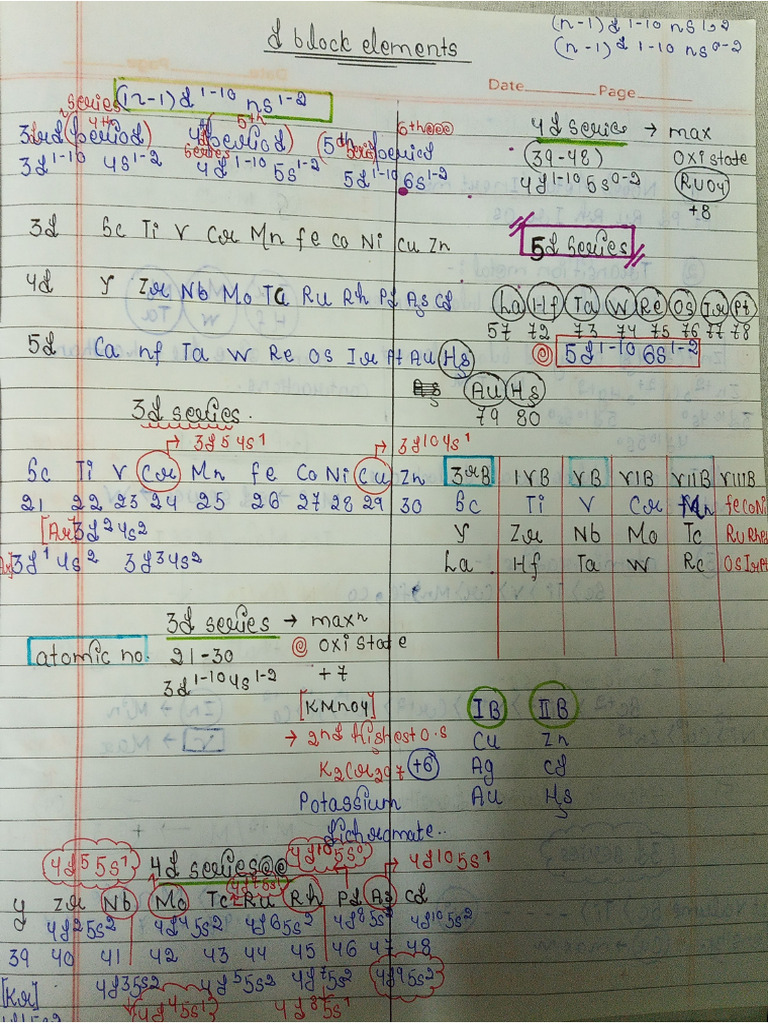 (n-1)d 1-10 ns 1-2
(n-1)d 1-10 ns 0-2
d block elements
Date Page
series (n-1)d 1-10 ns 1-2
4th 5th 6th
3d (period) 4d (period) (5d period)
series series
3d 1-10 4s 1-2 4d 1-10 5s 1-2 5d 1-10 6s 1-2
4d series → max
(39-48) oxi state
4d 1-10 5s 0-2 RuO4
+8
3d Sc Ti V Cr Mn fe Co Ni Cu Zn
5d series
4d Y Zr Nb Mo Tc Ru Rh Pd Ag Cd
La Hf Ta W Re Os Ir Pt
57 72 73 74 75 76 77 78
5d La Hf Ta W Re Os Ir Pt Au Hg
5d 1-10 6s 1-2
Au Hg
79 80
3d series.
→ 3d5 4s1 → 3d10 4s1
Sc Ti V Cr Mn fe Co Ni Cu Zn
21 22 23 24 25 26 27 28 29 30
[Ar]3d2 4s2
3d1 4s2 3d3 4s2
3rB IVB VB VIB VIIB VIIIB
Sc Ti V Cr Mn fe Co Ni
Y Zr Nb Mo Tc Ru Rh
La Hf Ta W Re Os Ir Pt
3d series → maxm
atomic no. 21-30 oxi state
3d 1-10 4s 1-2 +7
[KMnO4]
→ 2nd highest o.s
K2Cr2O7 +6
Potassium
dichromate..
IB IIB
Cu Zn
Ag Cd
Au Hg
4d5 5s1 4d series 4d10 5s0 → 4d10 5s1
4d7 5s1
Y Zr Nb Mo Tc Ru Rh Pd Ag Cd
4d2 5s2 4d4 5s2 4d6 5s2 4d8 5s2 4d10 5s2
39 40 41 42 43 44 45 46 47 48
[Kr] 4d3 5s2 4d5 5s2 4d7 5s2 4d9 5s2
4d4 5s1 4d8 5s1
4d1 5s2